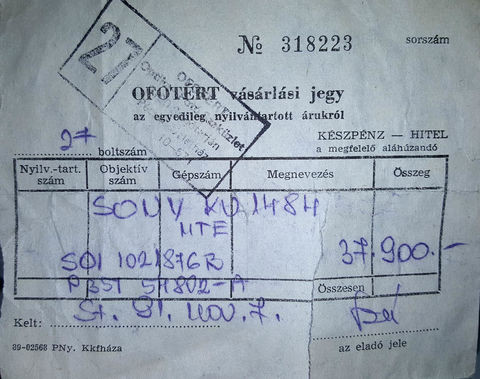 № 318223 sorszám
27
OFOTÉRT vásárlási jegy
az egyedileg nyilvántartott árukról
27 boltszám
KÉSZPÉNZ — HITEL
a megfelelő aláhúzandó
Nyilv.-tart. szám Objektív szám Gépszám Megnevezés Összeg
SONY KV 1484
MTE
37.900.-
SOI 1021876R
Összesen
Kelt: St. 91. nov. 7.
89-02568 PNy. Kkfháza
az eladó jele